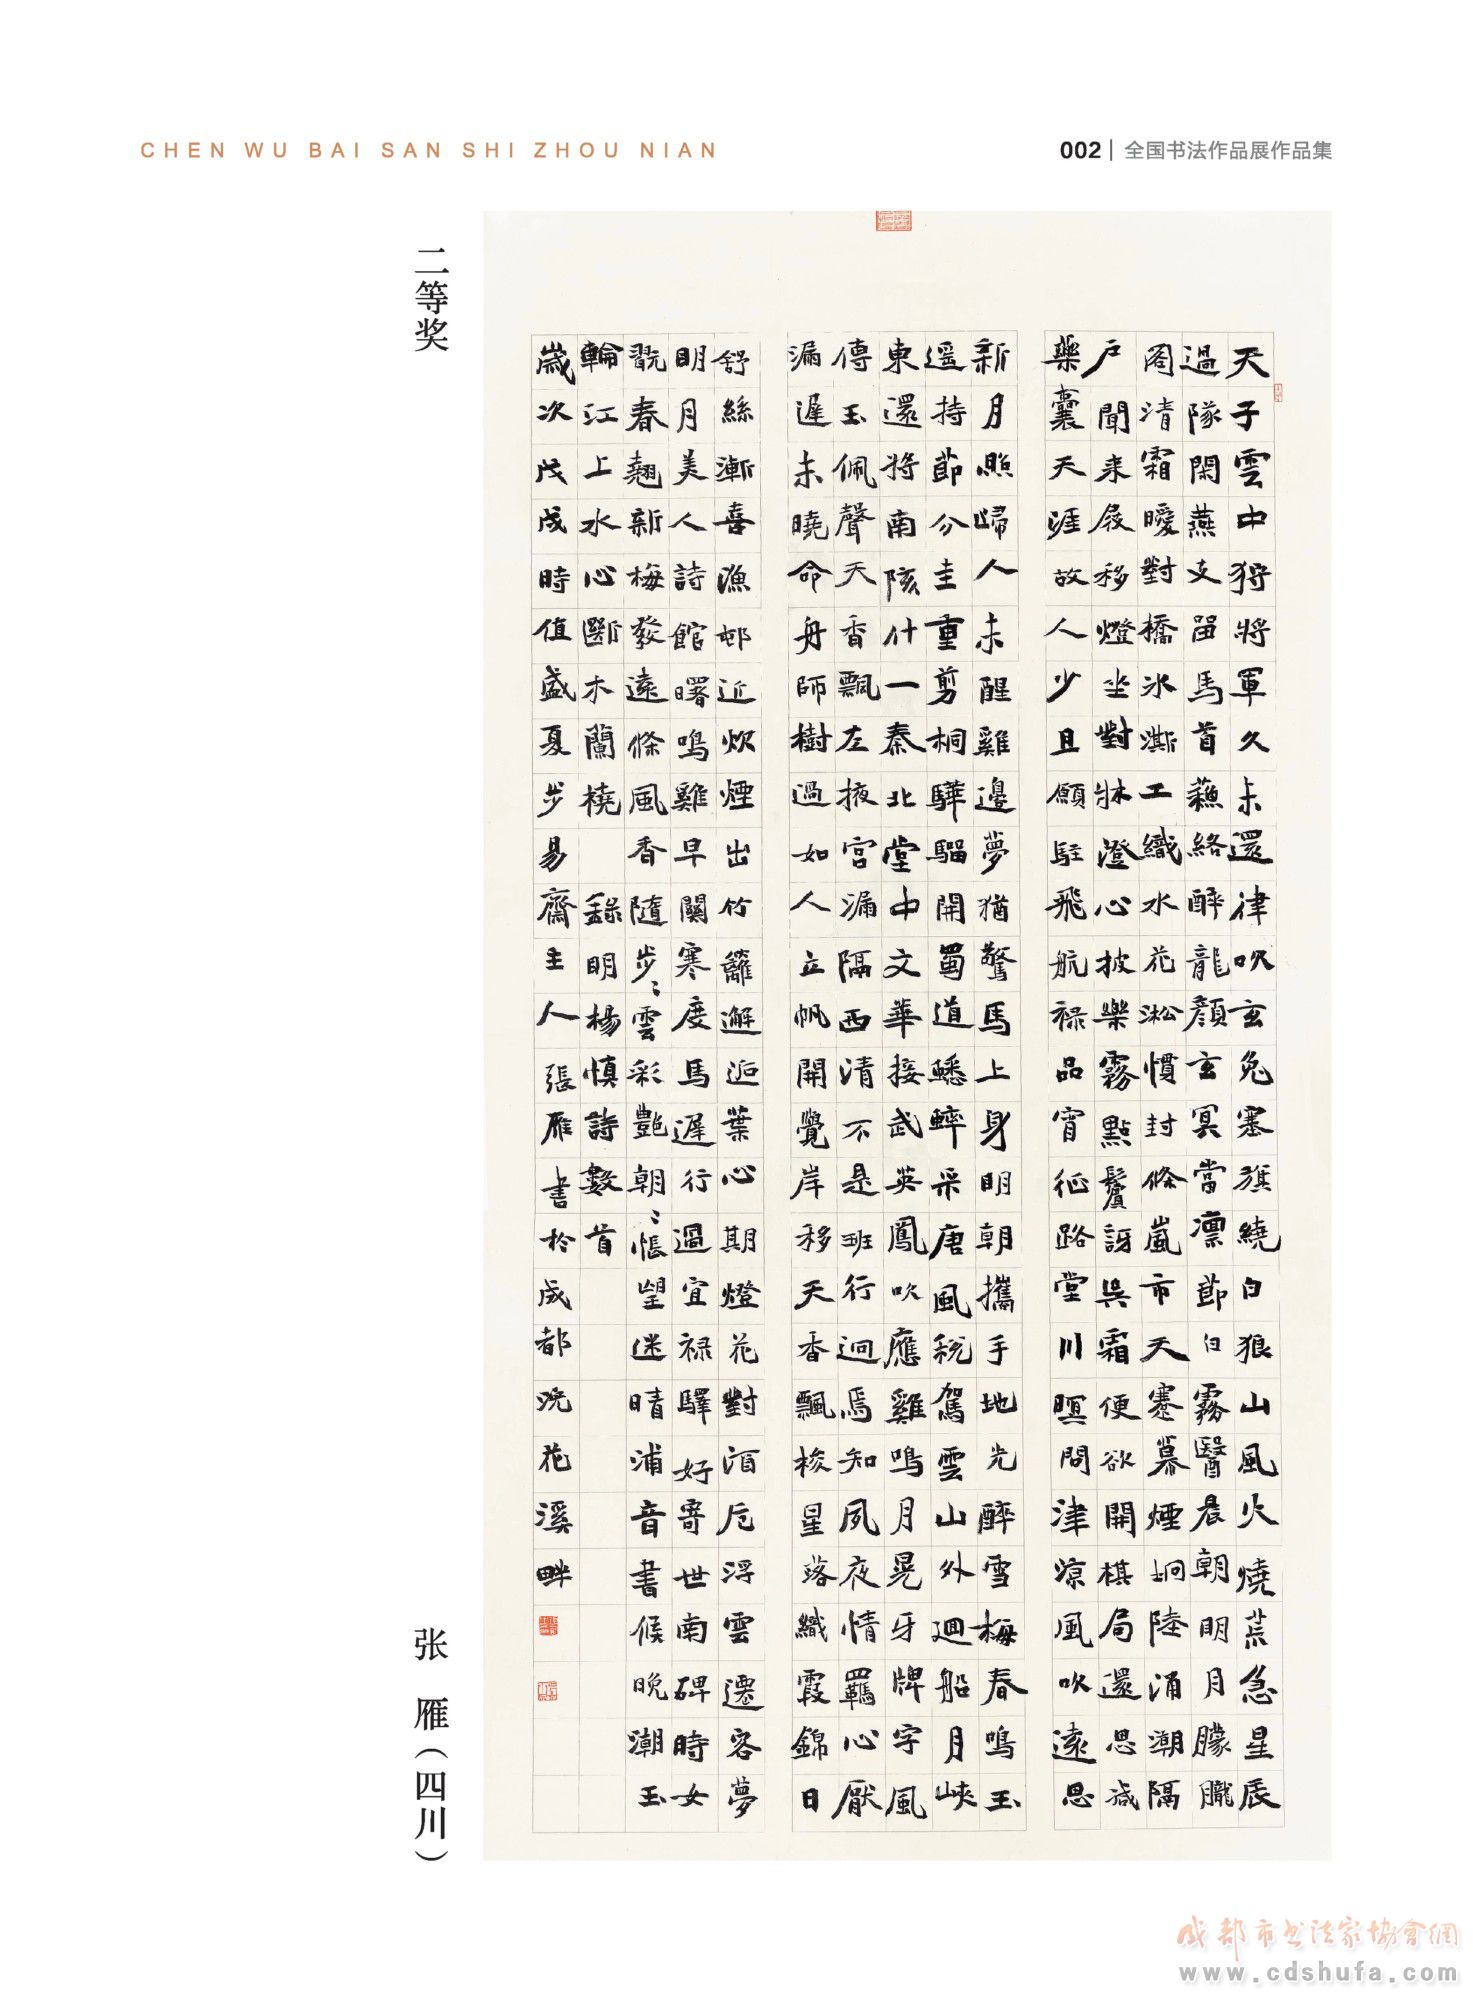 CHEN WU BAI SAN SHI ZHOU NIAN
002 | 全国书法作品展作品集
二等奖
天子雲中狩將軍久未還律吹玄兔塞旗繞白狼山風火燒荒急星辰
過隊閑燕支留馬首蘓絡醉龍顏玄冥當凛節白霧翳晨朝明月朦朧
閣清霜曖對橋冰澌工織水花淞慣封條嵐市天蹇幕煙坰陸涌潮隔
戶聞来屐移燈坐對牀澄心披樂霧點鬢訝吳霜便欲開棋局還思減
藥囊天涯故人少且願駐飛航禄品宵征路堂川暝問津凉風吹遠思
新月照歸人未醒雞邊夢猶驚馬上身明朝攜手地先醉雪梅春鳴玉
遥持節分圭重剪桐驊騮開蜀道蟋蟀采唐風税駕雲山外迴船月峡
東還将南陔什一奏北堂中文華接武英鳳吹應雞鳴月晃牙牌字風
傳玉佩聲天香飄左掖宫漏隔西清不是班行迥焉知夙夜情羈心厭
漏遲未曉命舟師樹過如人立帆開覺岸移天香飄桉星落織霞錦日
舒絲漸喜漁邨近炊煙出竹籬邂逅葉心期燈花對酒卮浮雲遷客夢
明月美人詩館曙鳴雞早關寒度馬遲行過宜禄驛好寄世南碑時女
翫春翹新梅發遠條風香隨步〻雲彩艷朝〻悵望迷晴浦音書候晚潮玉
輪江上水心斷木蘭橈 錄明楊慎詩數首
歲次戊戌時值盛夏步易齋主人張雁書於成都浣花溪畔
张 雁（四川）
成都市书法家協會網
www.cdshufa.com